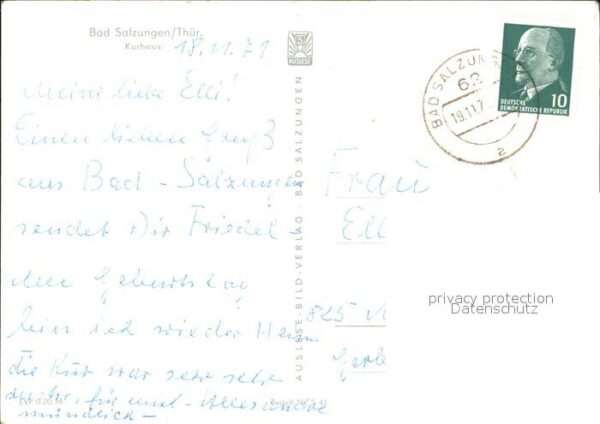 Bad Salzungen/Thür.
Kurhaus
18.11.71
AUSLESE
Meine liebe Elli!
Einen lieben Gruß
aus Bad-Salzungen
sendet Dir Friedel-
Geburtstag
bin ich wieder Heim
die Kur war sehr sehr
für mich - Alles andre
mündlich -
AUSLESE-BILD-VERLAG · BAD SALZUNGEN
BAD SALZUN
62
19.11.7
a
10
DEUTSCHE
DEMOKRATISCHE REPUBLIK
Frau
Ell
825 M
Gerb
privacy protection
Datenschutz
EVP 0,20 M
Bestell-Nr.